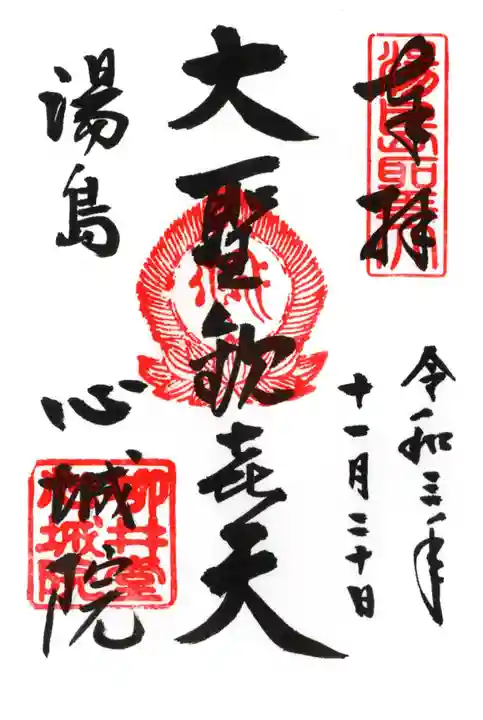 奉拝
湯島聖天
令和三年
十一月二十日
大聖歓喜天
湯島
心城院
柳井堂
心城院